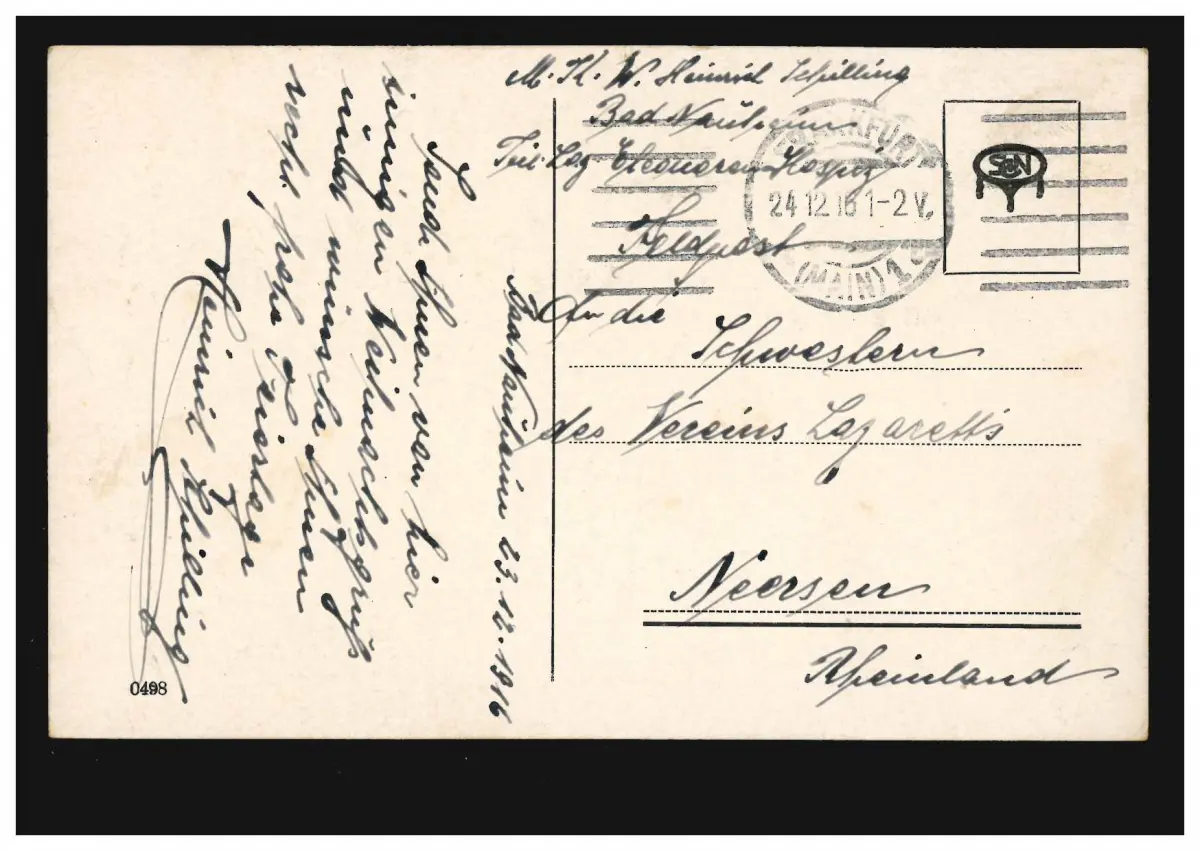 M. K. W. Heinrich Schilling
Bad Nauheim
Teil. Laz Eleonoren-Hospiz
Feldpost
FRANKFURT
24 12 16 1-2 V.
(MAIN) 1
SBN
An die
Schwestern
des Vereins Lazaretts
Neersen
Rheinland
Bad Nauheim 23.12.1916
Sende Ihnen von hier
innigen Weihnachtsgruß
und wünsche Ihnen
recht frohe Feiertage
Heinrich Schilling
0498